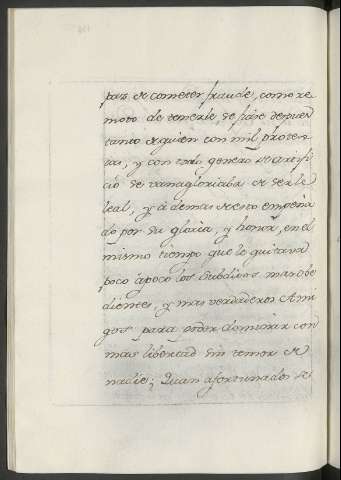 paz de cometer fraude, como re
moto de temerle, se fiase despues
tanto de quien con mil protes-
tas, y con todo genero de artifi
cio se vanagloriaba de serle
leal, y â demas de esto empeña
do por su gloria, y honor, en el
mismo tiempo que le quitava
poco âpoco los Subditos mas obe
dientes, y mas verdaderos Ami
gos para poder dominar con
mas libertad sin temor de
nadie; Quan afortunados se